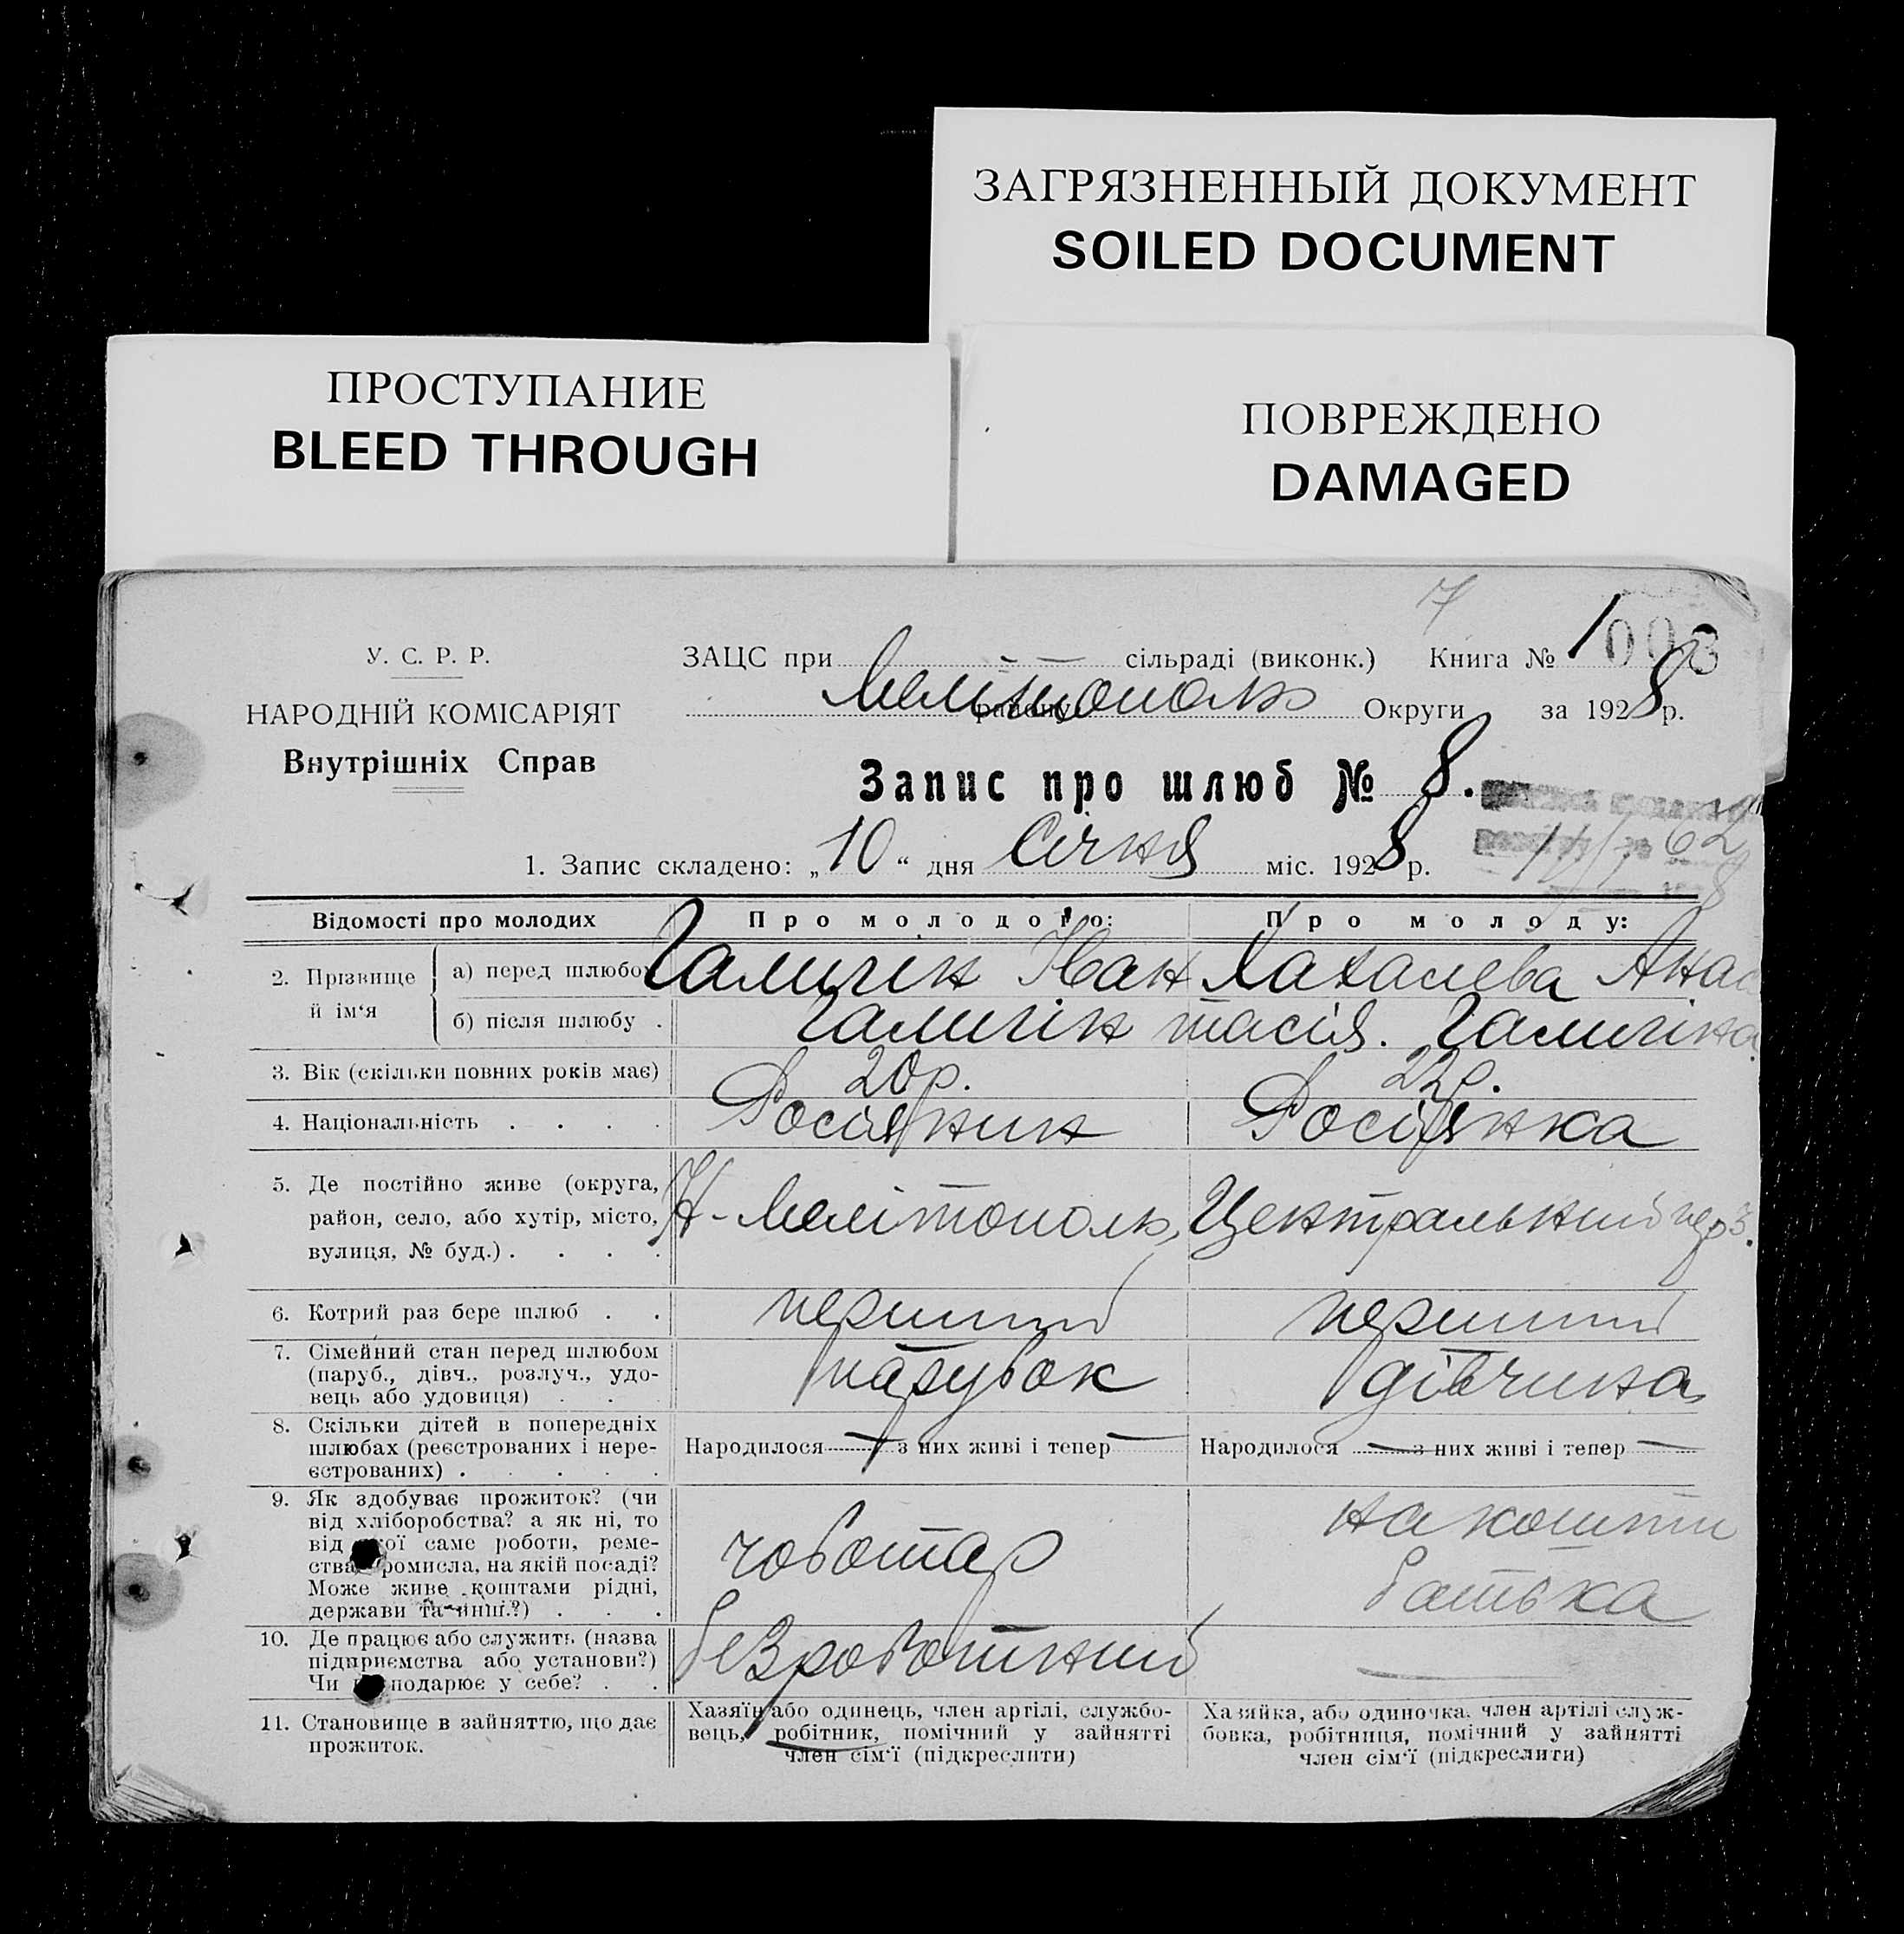 ЗАГРЯЗНЕННЫЙ ДОКУМЕНТ
SOILED DOCUMENT
ПРОСТУПАНИЕ
BLEED THROUGH
ПОВРЕЖДЕНО
DAMAGED
7
У. С. Р. Р.
НАРОДНІЙ КОМІСАРІЯТ
Внутрішніх Справ
ЗАЦС при сільраді (виконк.) Книга № 1 003
Мелітополь району Округи за 1928 р.
Запис про шлюб № 8.
1. Запис складено: „10“ дня Січня міс. 1928 р.
Відомості про молодих Про молодого: Про молоду:
2. Прізвище й ім‘я
а) перед шлюбом Галичін Іван Хахалева Анас
б) після шлюбу . Галичін тасія. Галичіна
3. Вік (скільки повних років має) 20р. 22р.
4. Національність . . . . Росіянин Росіянка
5. Де постійно живе (округа,
район, село, або хутір, місто, Н-Мелітополь, Центральний пер 3.
вулиця, № буд.) . . . .
6. Котрий раз бере шлюб . . перший перший
7. Сімейний стан перед шлюбом
(паруб., дівч., розлуч., удо- парубок дівчина
вець або удовиця) . . .
8. Скільки дітей в попередніх
шлюбах (реєстрованих і нере- Народилося — з них живі і тепер — Народилося — з них живі і тепер —
єстрованих) . . . . .
9. Як здобуває прожиток? (чи
від хліборобства? а як ні, то на кошти
від саме роботи, реме-
ства, промисла, на якій посаді? чоботар
Може живе коштами рідні, батька
держави та инш.?) . . .
10. Де працює або служить (назва
підприємства або установи?) безроботний —
Чи господарює у себе? . .
11. Становище в зайняттю, що дає
прожиток.
Хазяїн або одинець, член артілі, службо-
вець, робітник, помічний у зайнятті
член сім‘ї (підкреслити)
Хазяйка, або одиночка, член артілі служ-
бовка, робітниця, помічний у зайнятті
член сім‘ї (підкреслити)